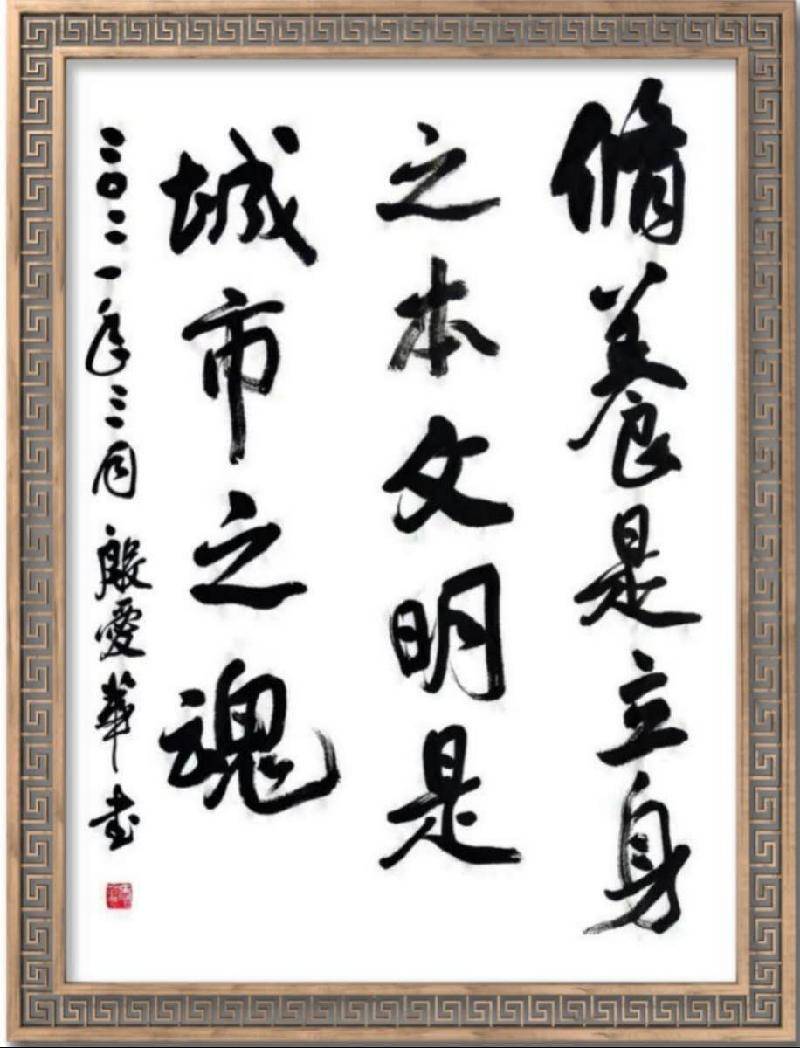 脩養是立身
之本文明是
城市之魂
二〇二一年三月殷愛華書